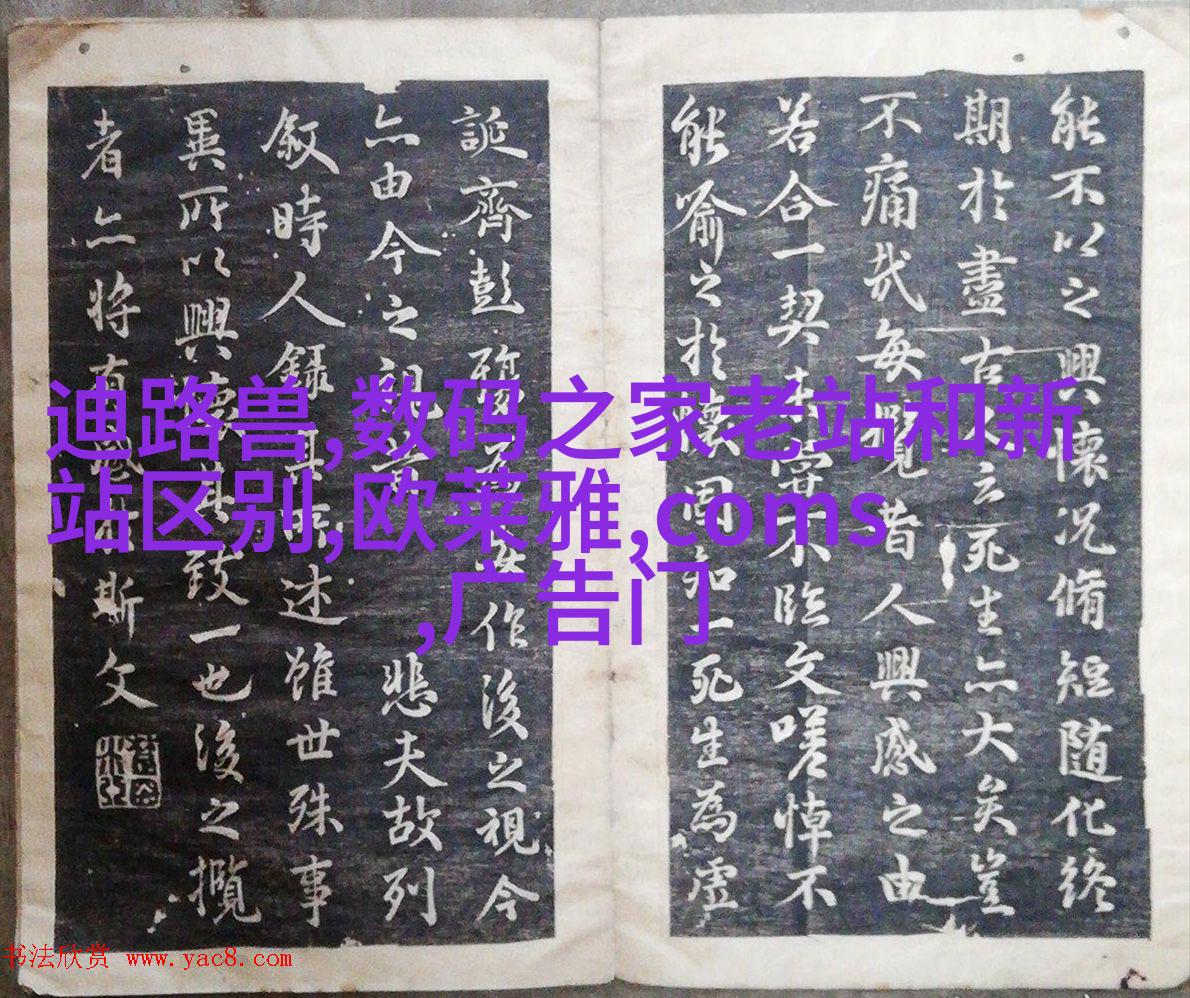 能不以之興懷况脩短随化終
期於盡古人云死生亦大矣豈
不痛哉每覽昔人興感之由
若合一契未甞不臨文嗟悼不
能喻之於懷固知一死生為虛
誕齊彭殤為妄作後之視今
亦由今之視昔悲夫故列
敘時人錄其所述雖世殊事
異所以興懷其致一也後之攬
者亦將有感於斯文
迪路兽,数码之家老站和新
站区别,欧莱雅,coms
,广告门
书法欣赏 www.yac8.com